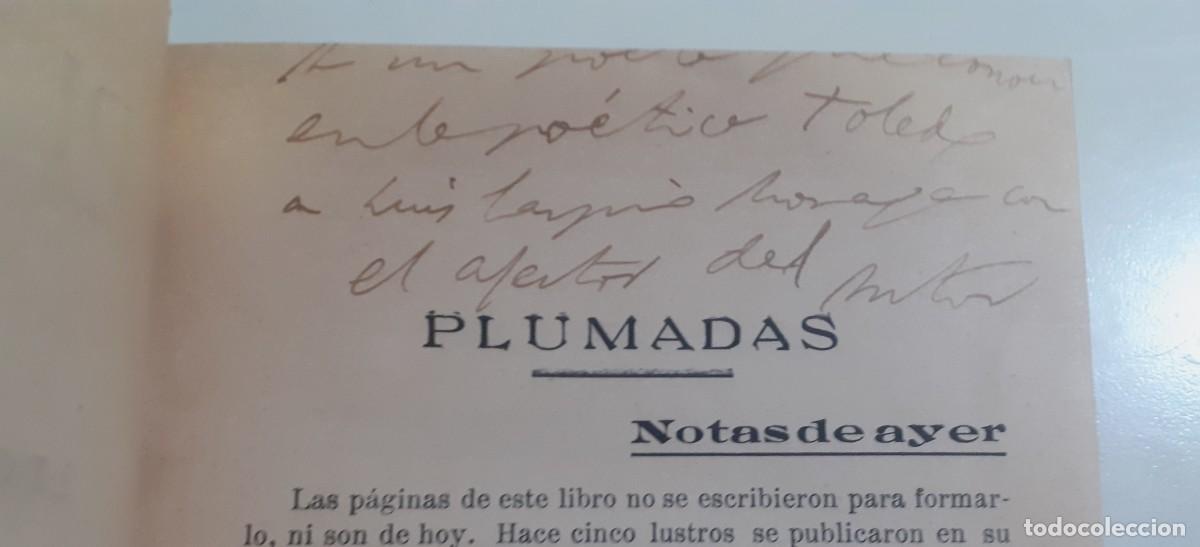 A un poeta que conocí
en la poético Toledo
a Luis Moraga con
el afecto del autor
PLUMADAS
Notas de ayer
Las páginas de este libro no se escribieron para formar-
lo, ni son de hoy. Hace cinco lustros se publicaron en su
todocoleccion